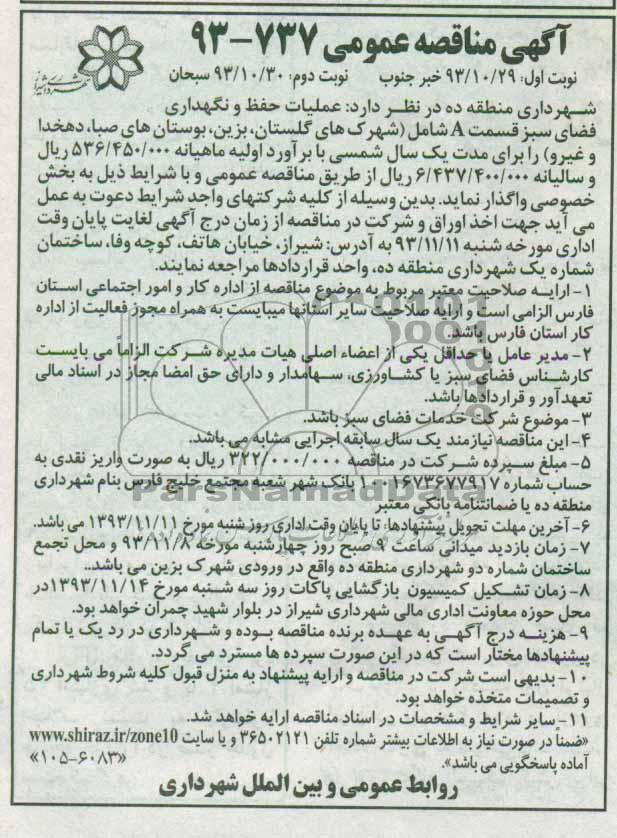 آگهی مناقصه عمومی ۷۳۷-۹۳
نوبت اول: ۹۳/۱۰/۲۹ خبر جنوب نوبت دوم: ۹۳/۱۰/۳۰ سبحان
شهرداری شیراز
شهرداری منطقه ده در نظر دارد: عملیات حفظ و نگهداری
فضای سبز قسمت A شامل (شهرک های گلستان، بزین، بوستان های صبا، دهخدا
و غیرو) را برای مدت یک سال شمسی با برآورد اولیه ماهیانه ۵۳۶/۴۵۰/۰۰۰ ریال
و سالیانه ۶/۴۳۷/۴۰۰/۰۰۰ ریال از طریق مناقصه عمومی و با شرایط ذیل به بخش
خصوصی واگذار نماید. بدین وسیله از کلیه شرکتهای واجد شرایط دعوت به عمل
می آید جهت اخذ اوراق و شرکت در مناقصه از زمان درج آگهی لغایت پایان وقت
اداری مورخه شنبه ۹۳/۱۱/۱۱ به آدرس: شیراز، خیابان هاتف، کوچه وفا، ساختمان
شماره یک شهرداری منطقه ده، واحد قراردادها مراجعه نمایند.
۱- ارایه صلاحیت معتبر مربوط به موضوع مناقصه از اداره کار و امور اجتماعی استان
فارس الزامی است و ارایه صلاحیت سایر استانها میبایست به همراه مجوز فعالیت از اداره
کار استان فارس باشد.
۲- مدیر عامل یا حداقل یکی از اعضاء اصلی هیات مدیره شرکت الزاماً می بایست
کارشناس فضای سبز یا کشاورزی، سهامدار و دارای حق امضا مجاز در اسناد مالی
تعهدآور و قراردادها باشد.
۳- موضوع شرکت خدمات فضای سبز باشد.
۴- این مناقصه نیازمند یک سال سابقه اجرایی مشابه می باشد.
۵- مبلغ سپرده شرکت در مناقصه ۳۲۲/۰۰۰/۰۰۰ ریال به صورت واریز نقدی به
حساب شماره ۱۰۰۱۶۷۳۶۷۷۹۱۷ بانک شهر شعبه مجتمع خلیج فارس بنام شهرداری
منطقه ده یا ضمانتنامه بانکی معتبر
۶- آخرین مهلت تحویل پیشنهادها: تا پایان وقت اداری روز شنبه مورخ ۱۳۹۳/۱۱/۱۱ می باشد.
۷- زمان بازدید میدانی ساعت ۹ صبح روز چهارشنبه مورخه ۹۳/۱۱/۸ و محل تجمع
ساختمان شماره دو شهرداری منطقه ده واقع در ورودی شهرک بزین می باشد..
۸- زمان تشکیل کمیسیون بازگشایی پاکات روز سه شنبه مورخ ۱۳۹۳/۱۱/۱۴در
محل حوزه معاونت اداری مالی شهرداری شیراز در بلوار شهید چمران خواهد بود.
۹- هزینه درج آگهی به عهده برنده مناقصه بوده و شهرداری در رد یک یا تمام
پیشنهادها مختار است که در این صورت سپرده ها مسترد می گردد.
۱۰- بدیهی است شرکت در مناقصه و ارایه پیشنهاد به منزل قبول کلیه شروط شهرداری
و تصمیمات متخذه خواهد بود.
۱۱- سایر شرایط و مشخصات در اسناد مناقصه ارایه خواهد شد.
«ضمناً در صورت نیاز به اطلاعات بیشتر شماره تلفن ۳۶۵۰۲۱۲۱ و یا سایت www.shiraz.ir/zone10
آماده پاسخگویی می باشد».
«۱۰۵-۶۰۸۳»
روابط عمومی و بین الملل شهرداری
ParsNamadData